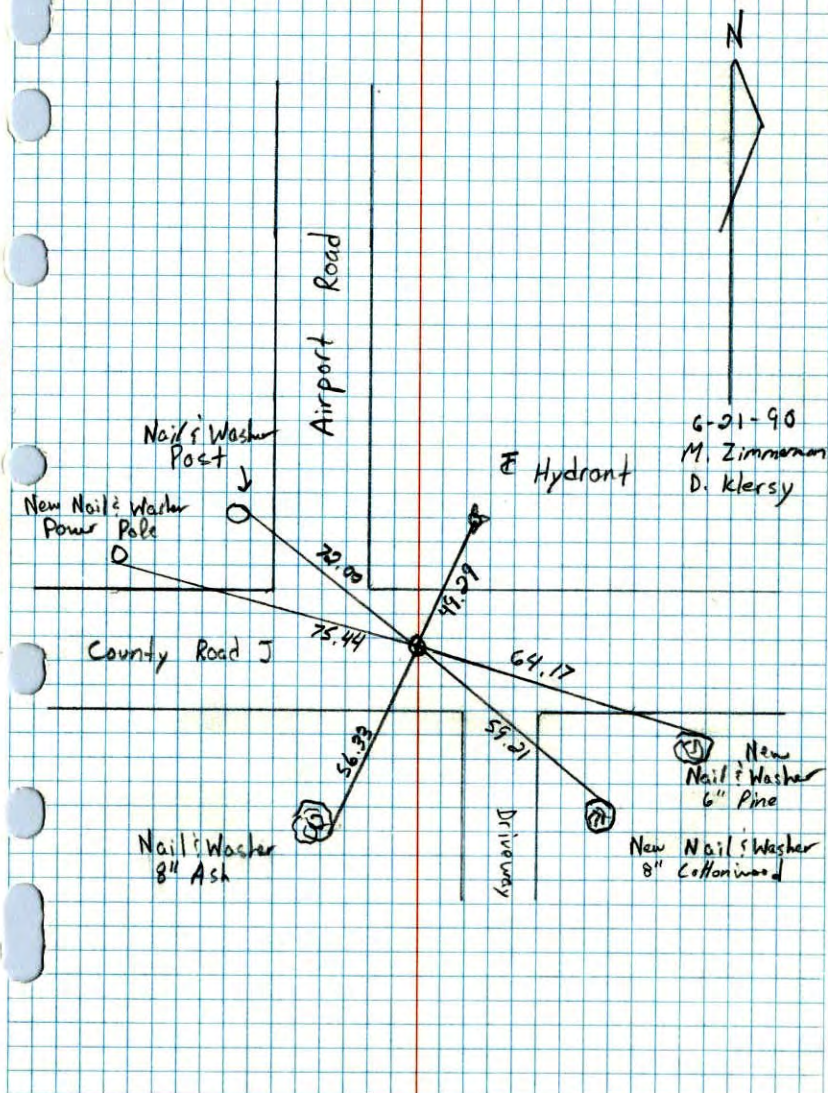 N
Airport Road
6-21-90
M. Zimmerman
D. Klersy
Nail & Washer
Post
Hydrant
New Nail & Washer
Power Pole
49.29
75.44
County Road J
64.17
59.21
56.33
New
Nail & Washer
6" Pine
Driveway
Nail & Washer
8" Ash
New Nail & Washer
8" Cottonwood